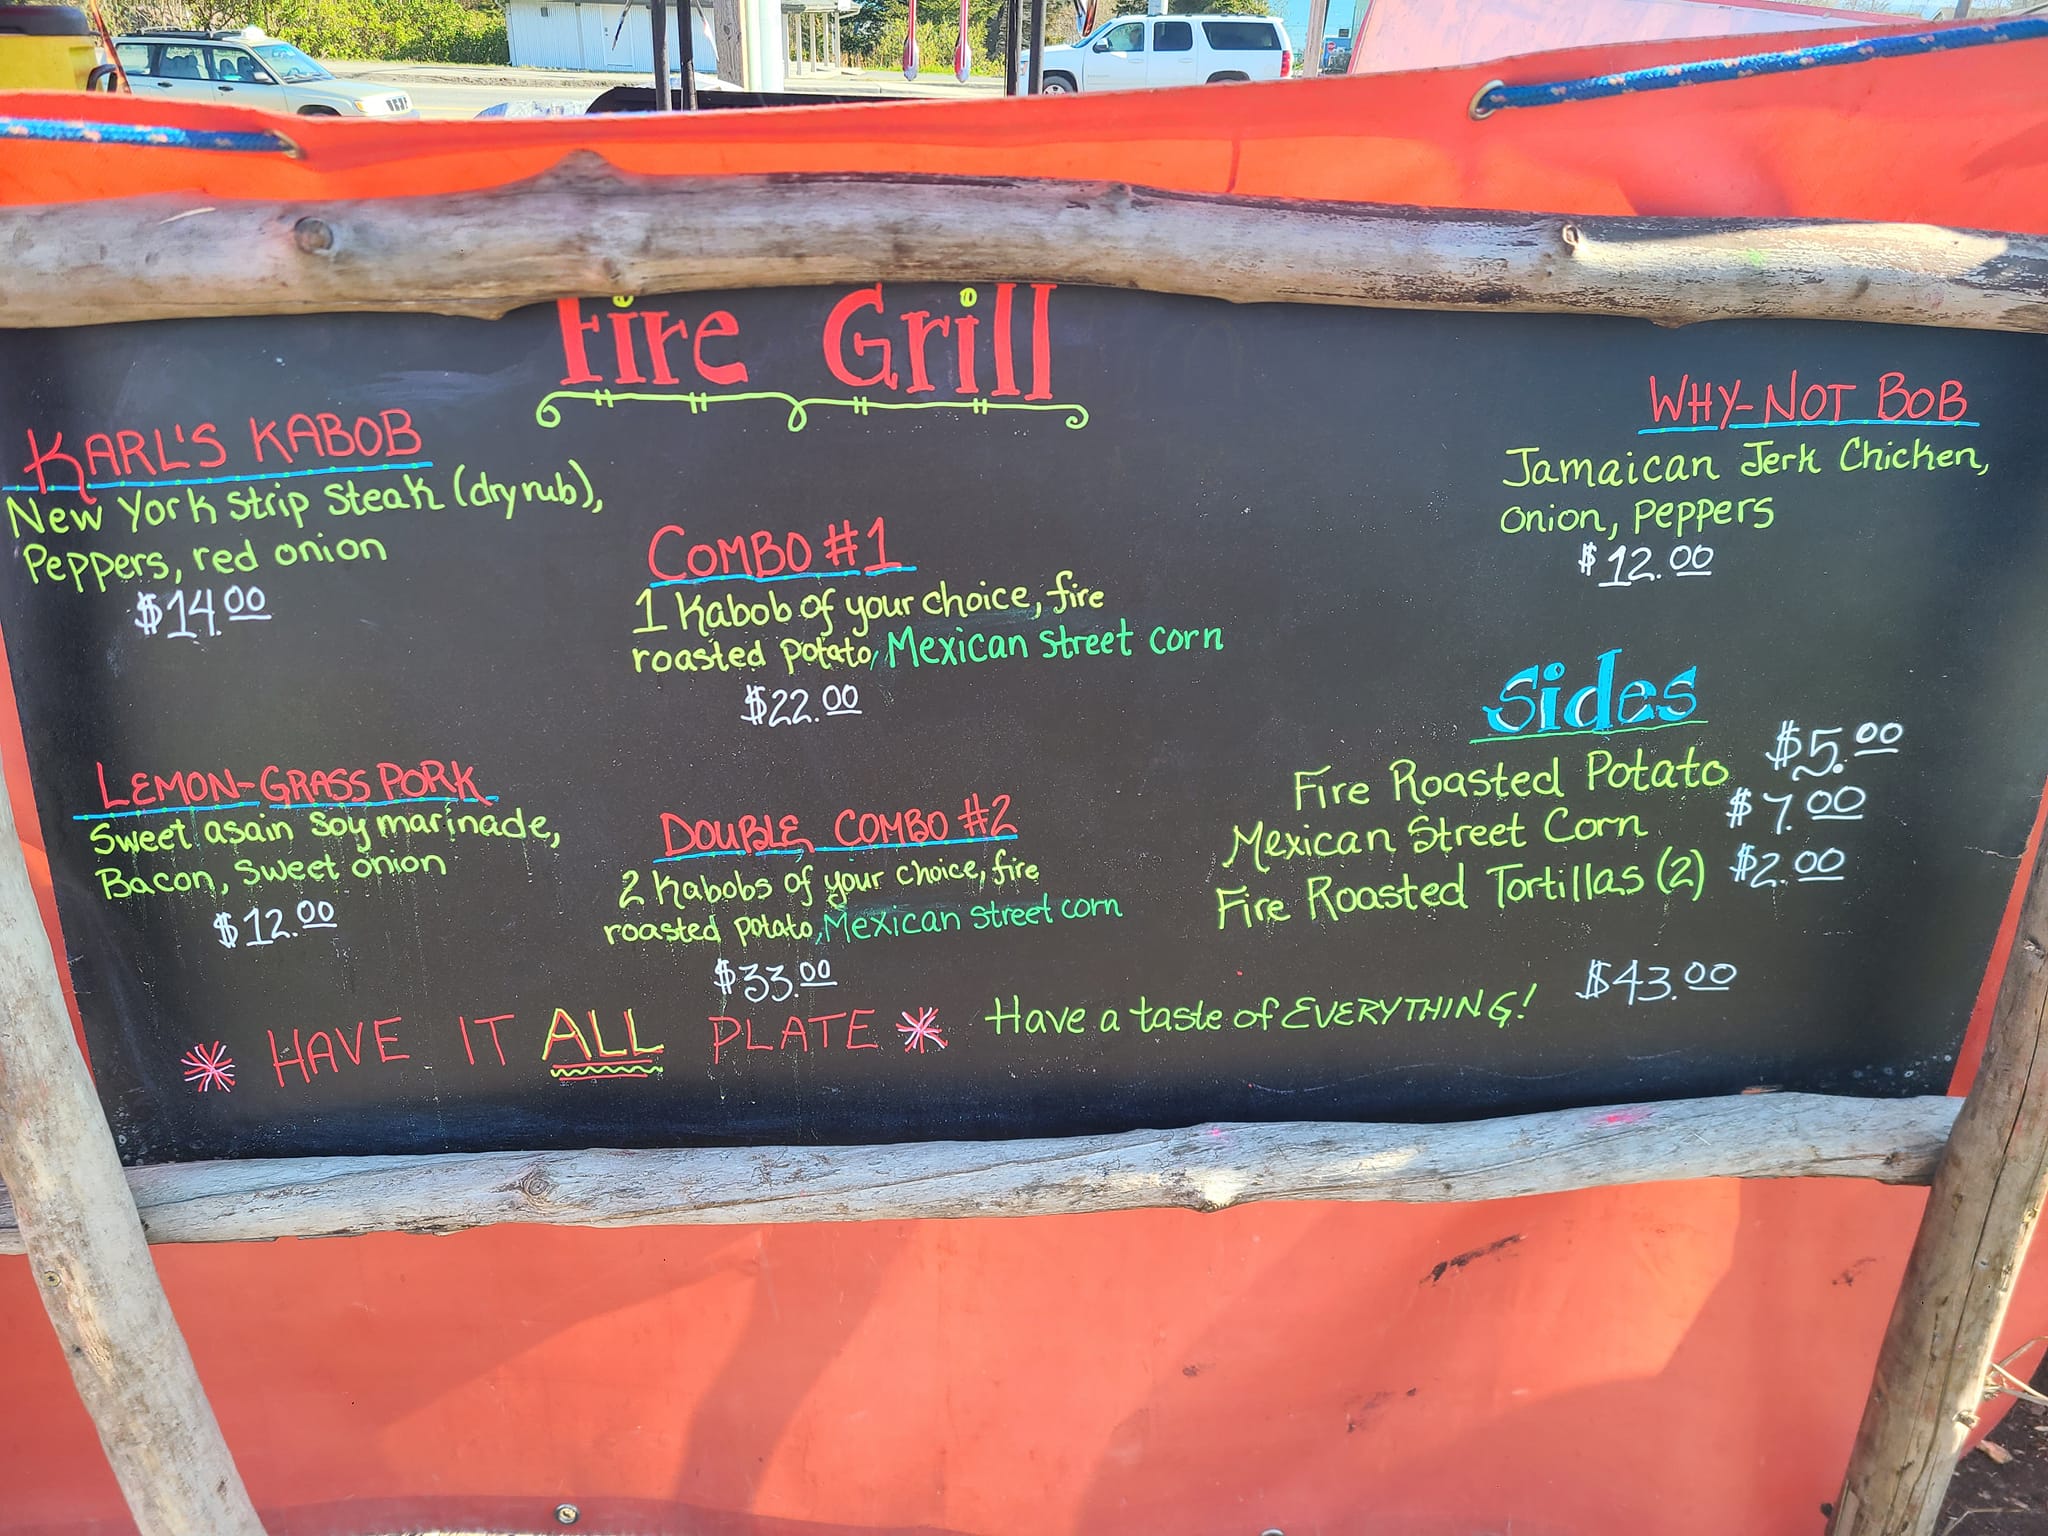 Fire Grill
KARL'S KABOB
New York Strip Steak (dry rub),
Peppers, red onion
$14.00
LEMON-GRASS PORK
Sweet asain Soy marinade,
Bacon, Sweet onion
$12.00
COMBO #1
1 Kabob of your choice, fire
roasted potato, Mexican street corn
$22.00
DOUBLE COMBO #2
2 Kabobs of your choice, fire
roasted potato, Mexican street corn
$33.00
WHY-NOT BOB
Jamaican Jerk Chicken,
Onion, Peppers
$12.00
Sides
Fire Roasted Potato $5.00
Mexican Street Corn $7.00
Fire Roasted Tortillas (2) $2.00
HAVE IT ALL PLATE Have a taste of EVERYTHING! $43.00